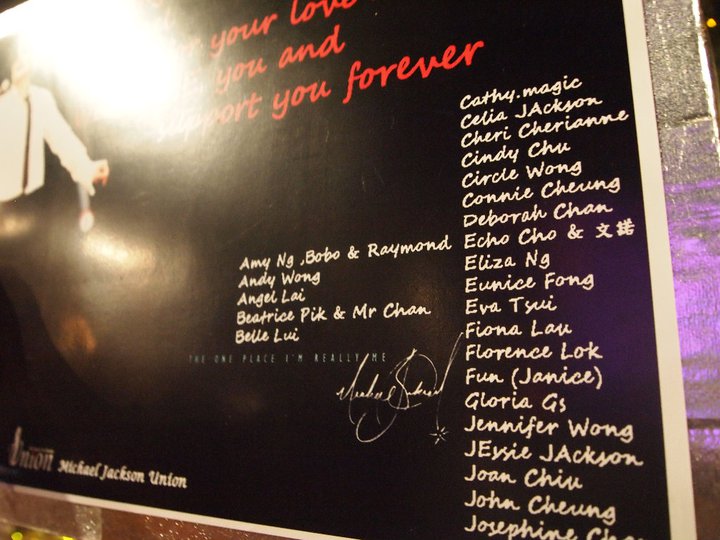 your love
you and
support you forever
Amy Ng ,Bobo & Raymond
Andy Wong
Angel Lai
Beatrice Pik & Mr Chan
Belle Lui
THE ONE PLACE I'M REALLY ME
Michael Jackson
Union
Michael Jackson Union
Cathy.magic
Celia JAckson
Cheri Cherianne
Cindy Chu
Circle Wong
Connie Cheung
Deborah Chan
Echo Cho & 文諾
Eliza Ng
Eunice Fong
Eva Tsui
Fiona Lau
Florence Lok
Fun (Janice)
Gloria Gs
Jennifer Wong
JEssie JAckson
Joan Chiu
John Cheung
Josephine